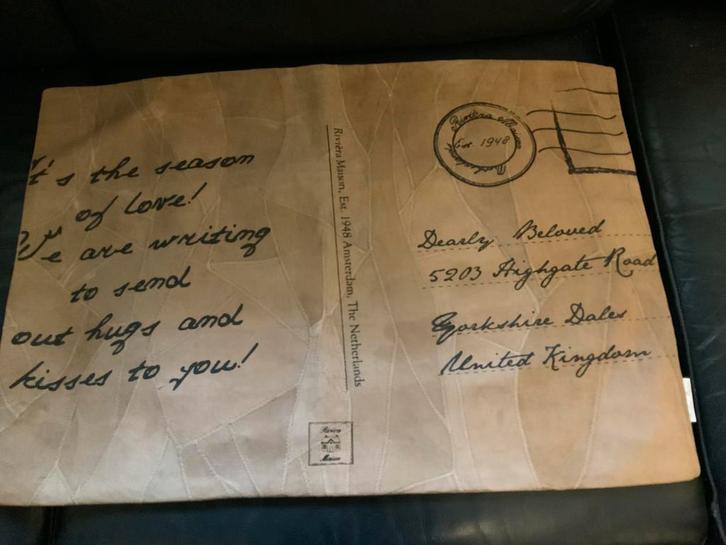 It's the season
of love!
We are writing
to send
out hugs and
kisses to you!
Rivièra Maison, Est. 1948 Amsterdam, The Netherlands
Rivièra Maison
Est. 1948
Dearly Beloved
5203 Highgate Road
Yorkshire Dales
United Kingdom
Rivièra
Maison